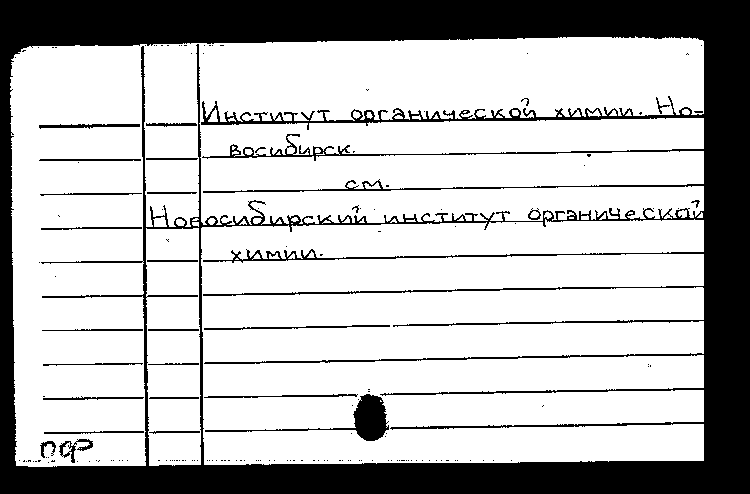 Институт органической химии. Но-
восибирск.
см.
Новосибирский институт органической
химии.
ПФР